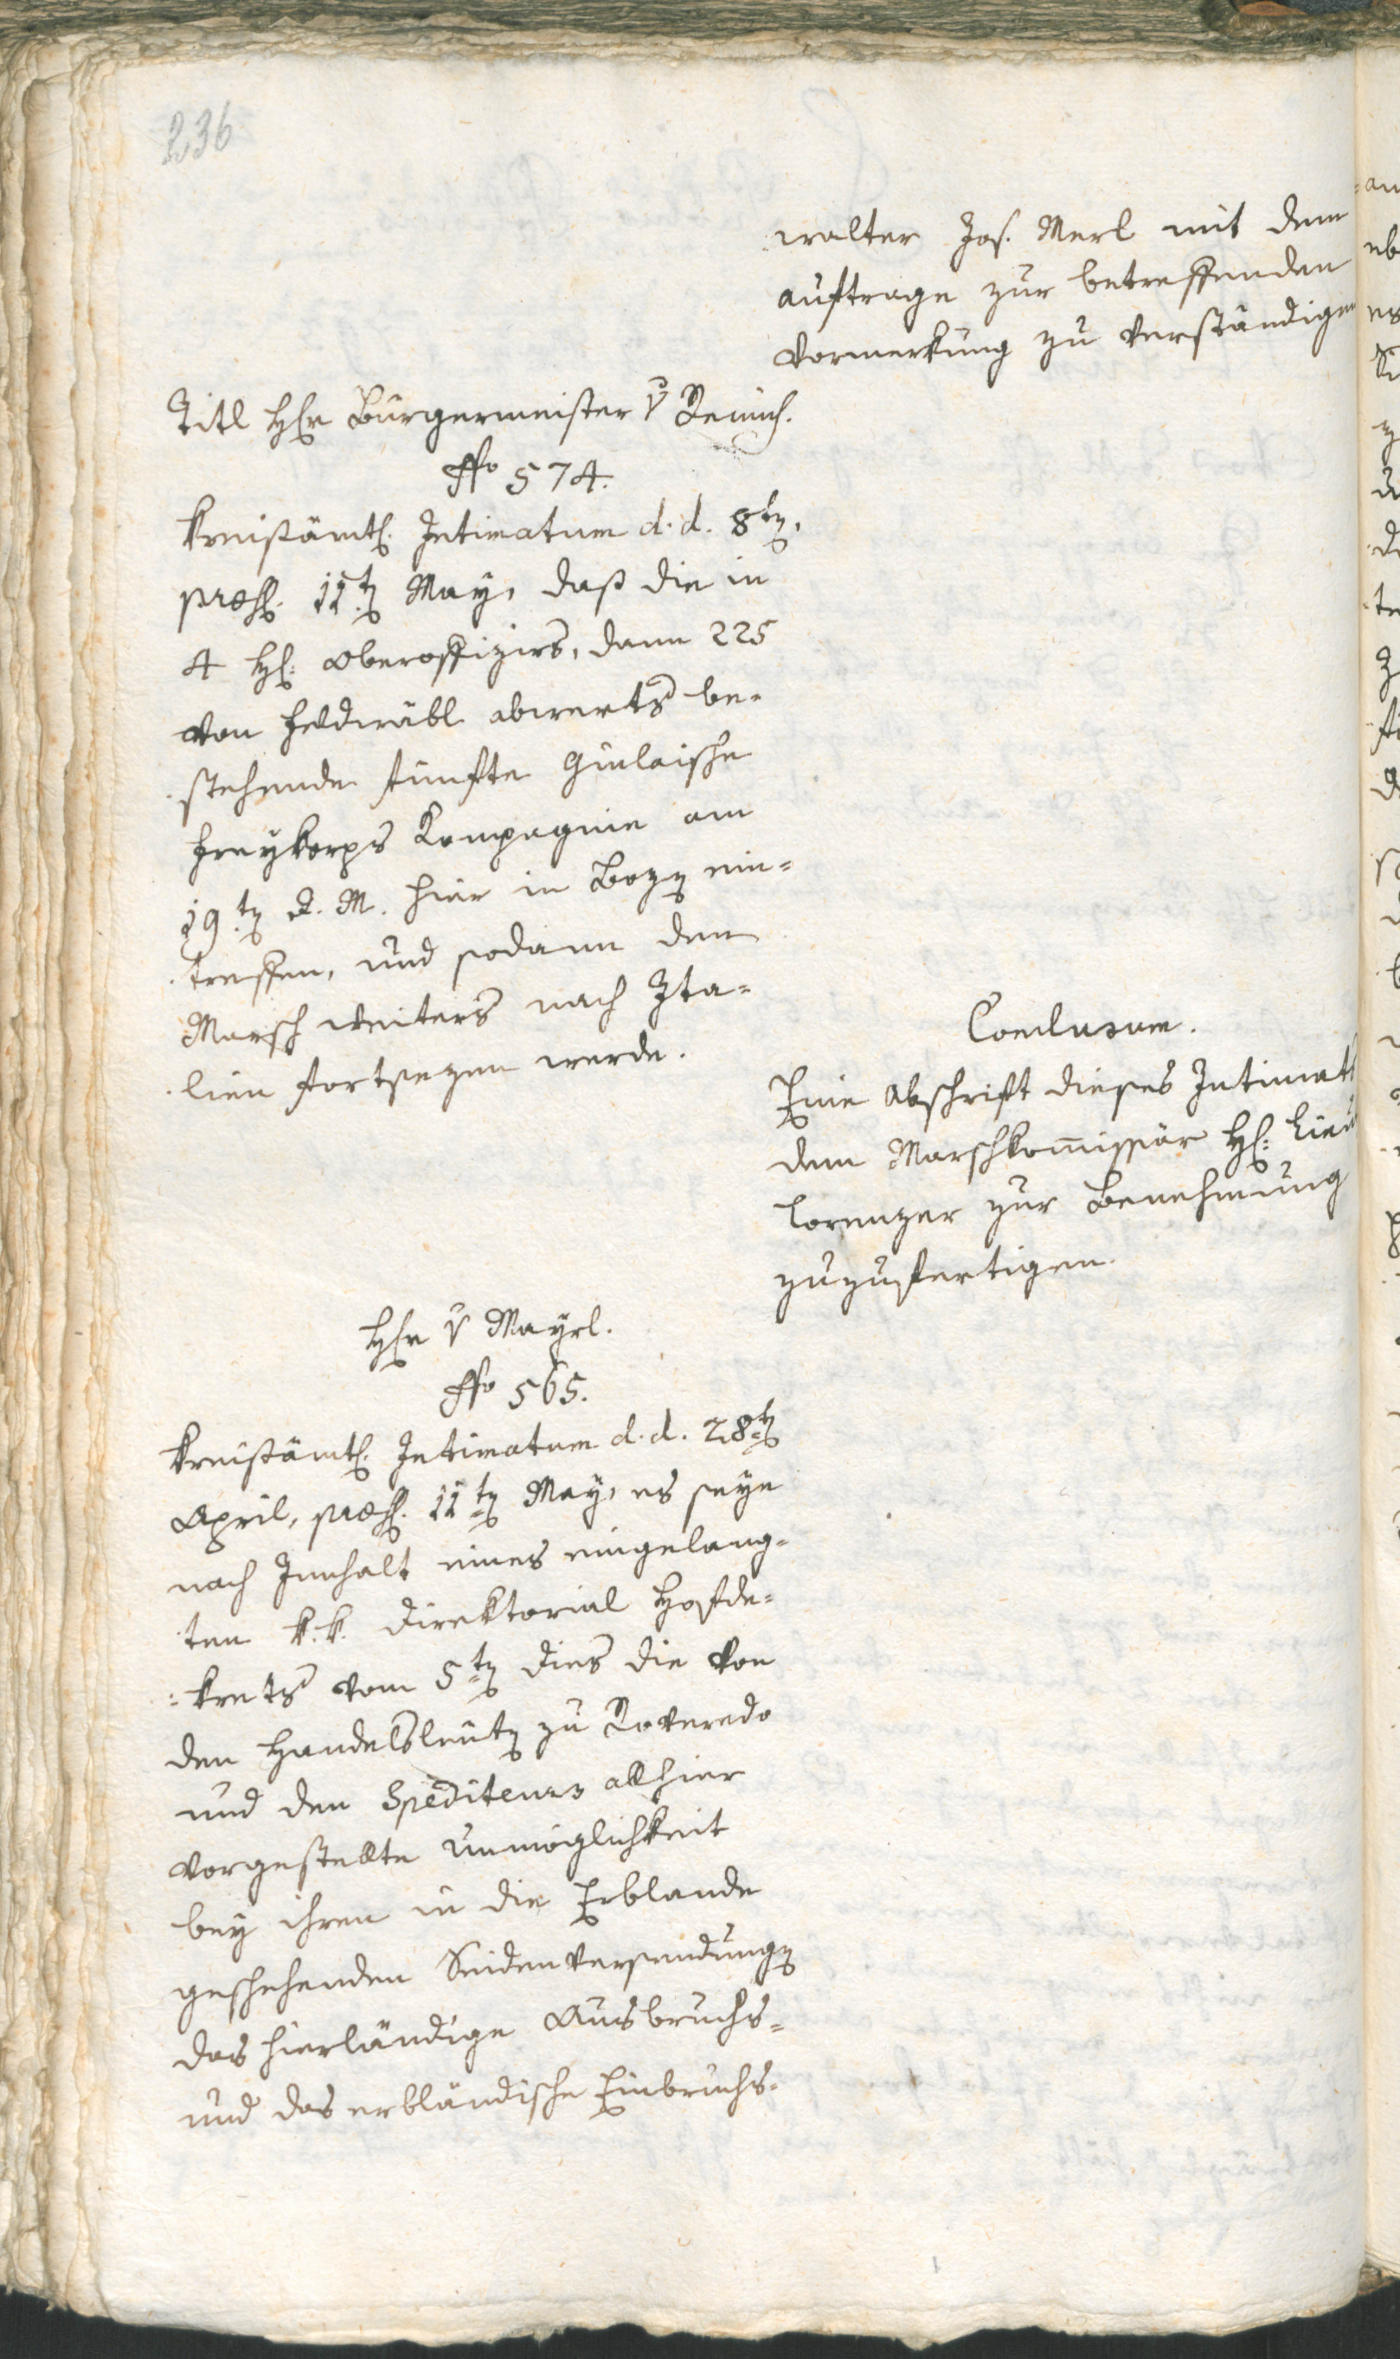 236
walter Jos. Merl mit dem
auftrage zur betreffenden
Vormerkung zu verständigen
Titl Hhr Bürgermeister v Remich.
Nro 574.
Kreisämtl. Intimatum d. d. 8ten,
præs. 11ten May, daß die in
4 H: Oberoffizirs, dann 225
von Feldwäbl abwerts be-
stehende fünfte Giulaische
Freykorps Kompagnie am
19ten d. M. hier in Bozen ein-
treffen, und sodann den
Marsch weiters nach Ita-
lien fortsezen werde.
Conclusum.
Eine Abschrift dieses Intimats
dem Marschkommissär H:
Lorenzer zur Benehmung
zuzufertigen.
Hhr v Mayrl.
Nro 565.
Kreisämtl. Intimatum d. d. 28ten
April, præs. 11ten May, es seye
nach Innhalt eines eingelang-
ten k. k. Direktorial Hofde-
krets vom 5ten dies die von
den Handelsleuten zu Roveredo
und den Spediteurs allhier
vorgestellte Unmöglichkeit
bey ihren in die Erblande
geschehenden Seidenversendungen
das hierländige Ausbruchs-
und das erbländische Einbruchs-